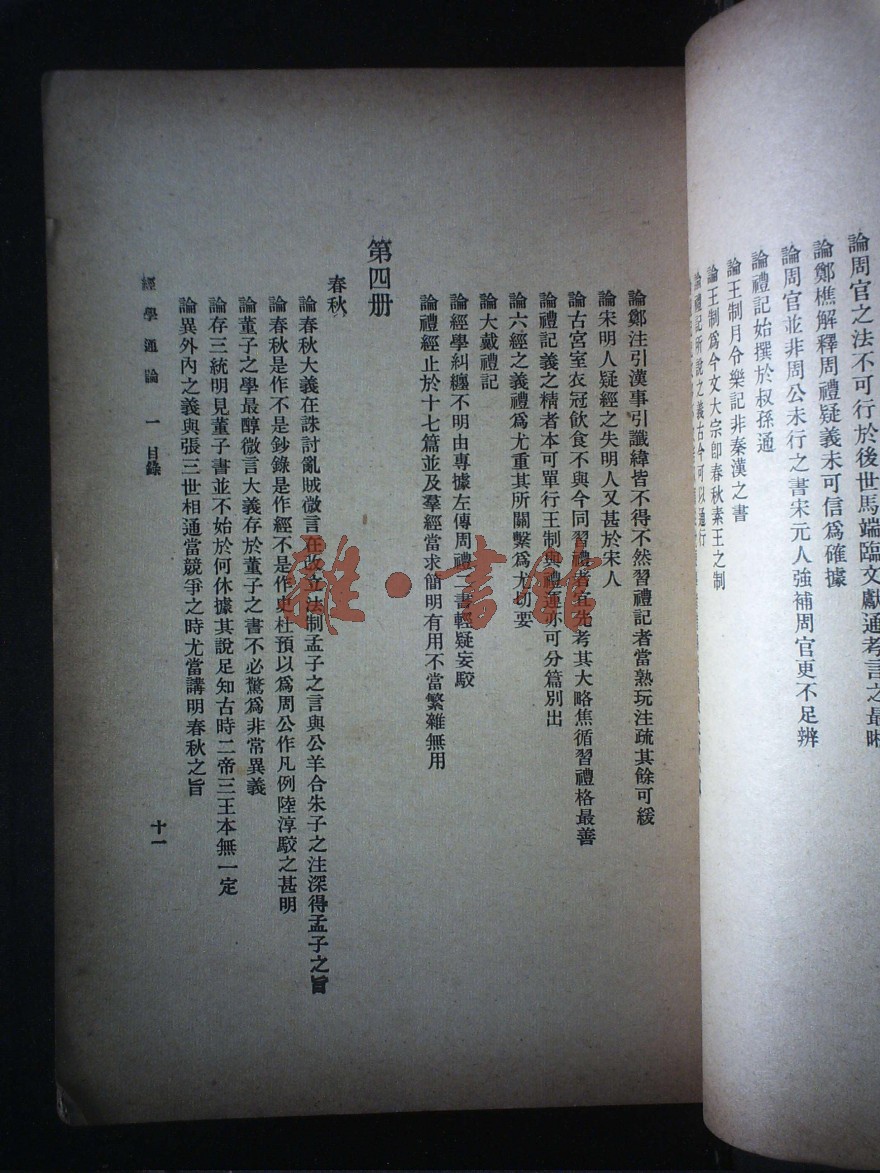 論周官之法不可行於後世馬端臨文獻通考言之最
論鄭樵解釋周禮疑義未可信爲確據
論周官並非周公未行之書宋元人強補周官更不足辨
論禮記始撰於叔孫通
論王制月令樂記非秦漢之書
論王制爲今文大宗卽春秋素王之制
論禮記所說之義古今可以通行
論鄭注引漢事引讖緯皆不得不然習禮記者當熟玩注疏其餘可緩
論宋明人疑經之失明人又甚於宋人
論古宮室衣冠飲食不與今同習禮者宜先考其大略焦循習禮格最善
論禮記義之精者本可單行王制與禮運亦可分篇別出
論六經之義禮爲尤重其所關繫爲尤切要
論大戴禮記
論經學糾纏不明由專據左傳周禮二書輕疑妄駁
論禮經止於十七篇並及羣經當求簡明有用不當繁雜無用
第四册
春秋
論春秋大義在誅討亂賊微言在改立法制孟子之言與公羊合朱子之注深得孟子之旨
論春秋是作不是鈔錄是作經不是作史杜預以爲周公作凡例陸淳駁之甚明
論董子之學最醇微言大義存於董子之書不必驚爲非常異義
論存三統明見董子書並不始於何休據其說足知古時二帝三王本無一定
論異外內之義與張三世相通當競爭之時尤當講明春秋之旨
經學通論 一 目錄
十一
雜·書館